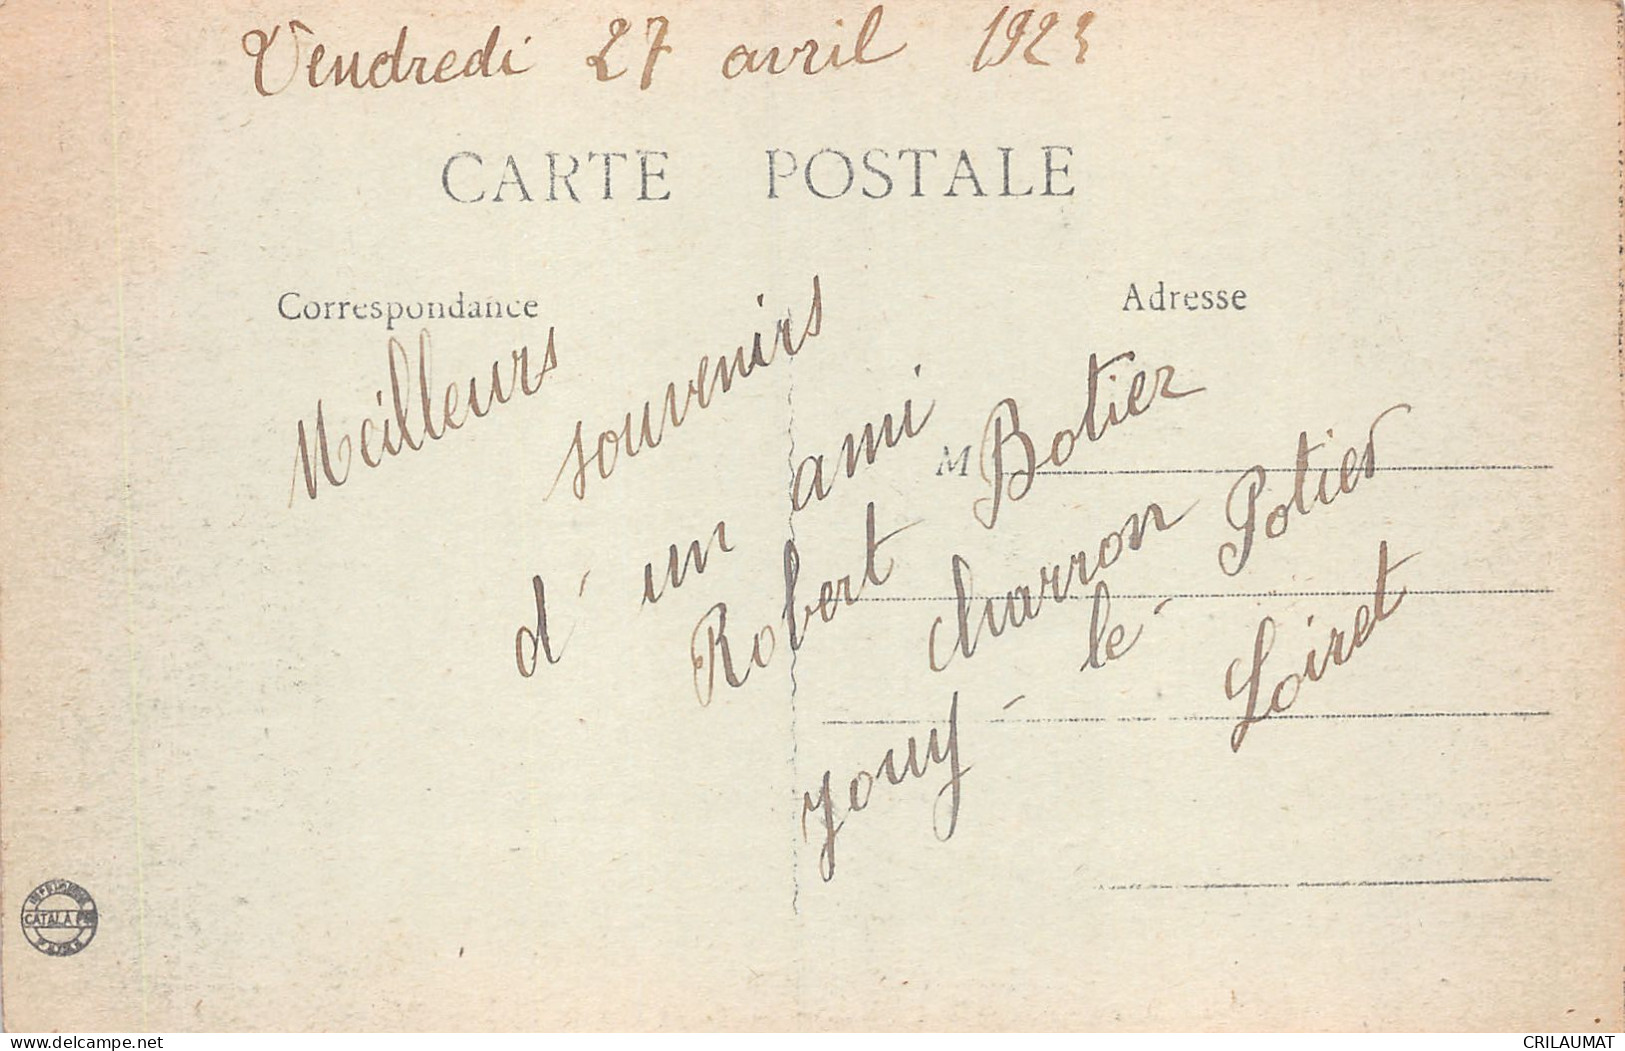 Vendredi 27 avril 1923
CARTE POSTALE
Correspondance
Adresse
Meilleurs souvenirs
d'un ami
Robert Botier
M
charron Potier
Jouy-le-
Loiret
CATALA
PARIS
delcampe.net
CRILAUMAT